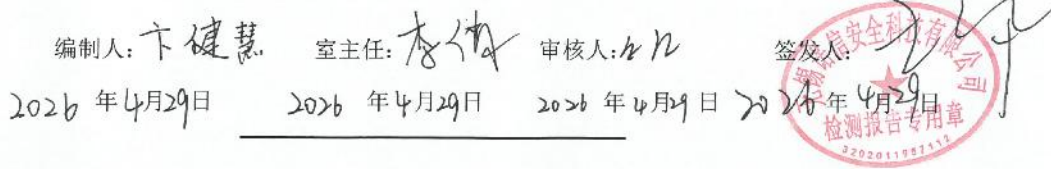 编制人: 卞健慧 室主任: 李 审核人: 签发人:
2026 年4月29日 2026 年4月29日 2026 年4月29日 2026 年4月29日
无锡 信安全科技有限公司
检测报告专用章